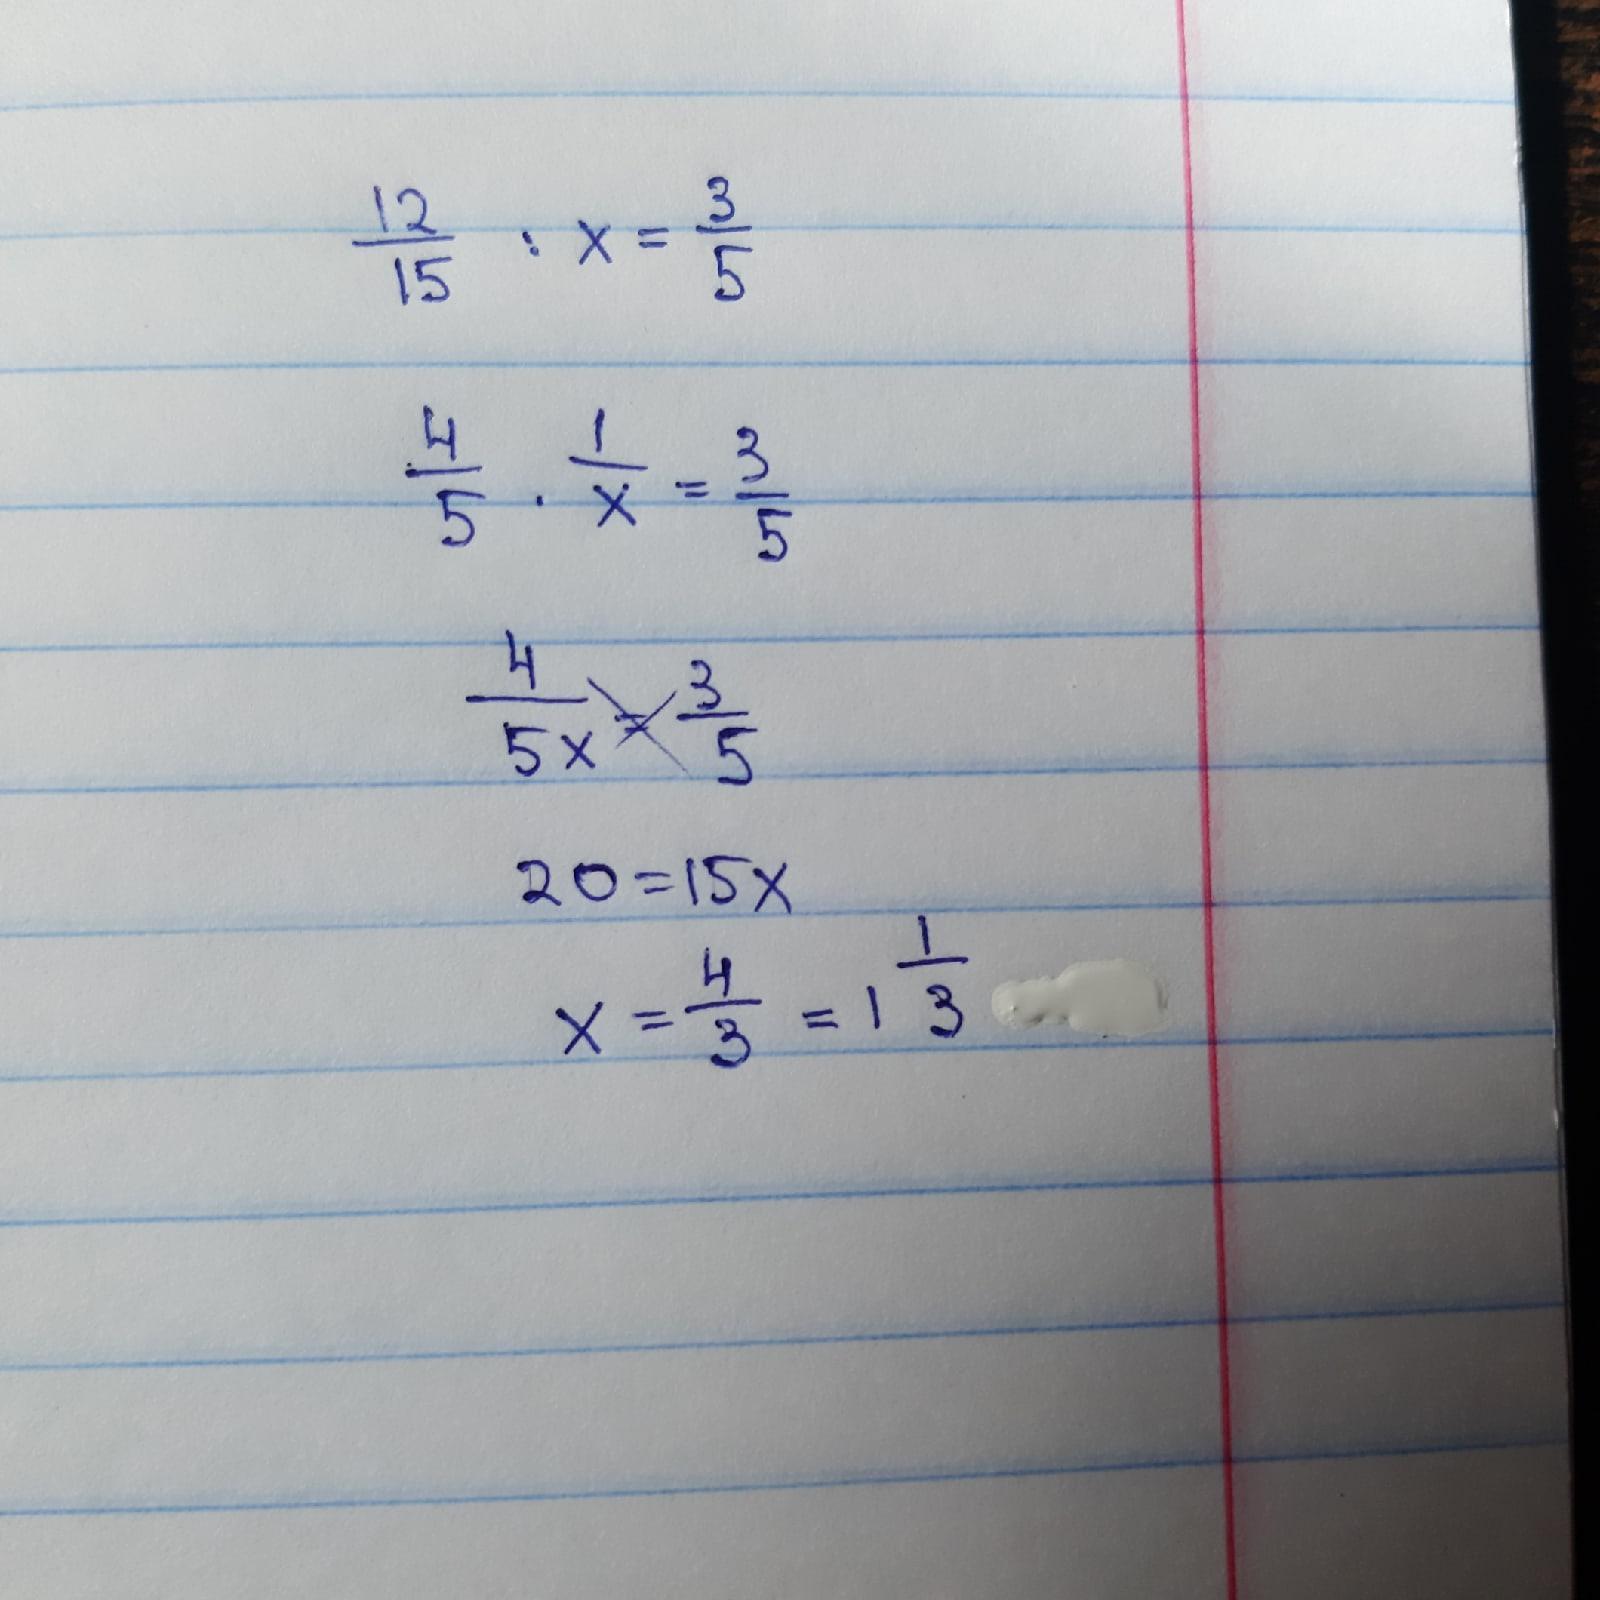 12/15 : x = 3/5
4/5 · 1/x = 3/5
4/5x = 3/5
20=15x
x = 4/3 = 1 1/3